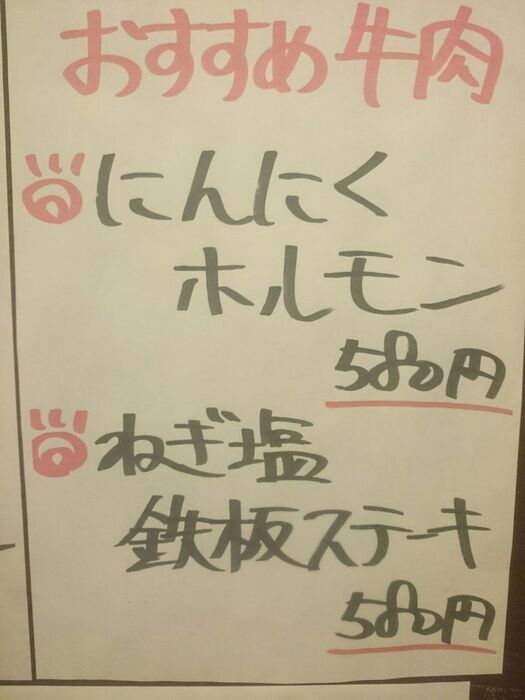 おすすめ牛肉
にんにく
ホルモン
580円
ねぎ塩
鉄板ステーキ
580円